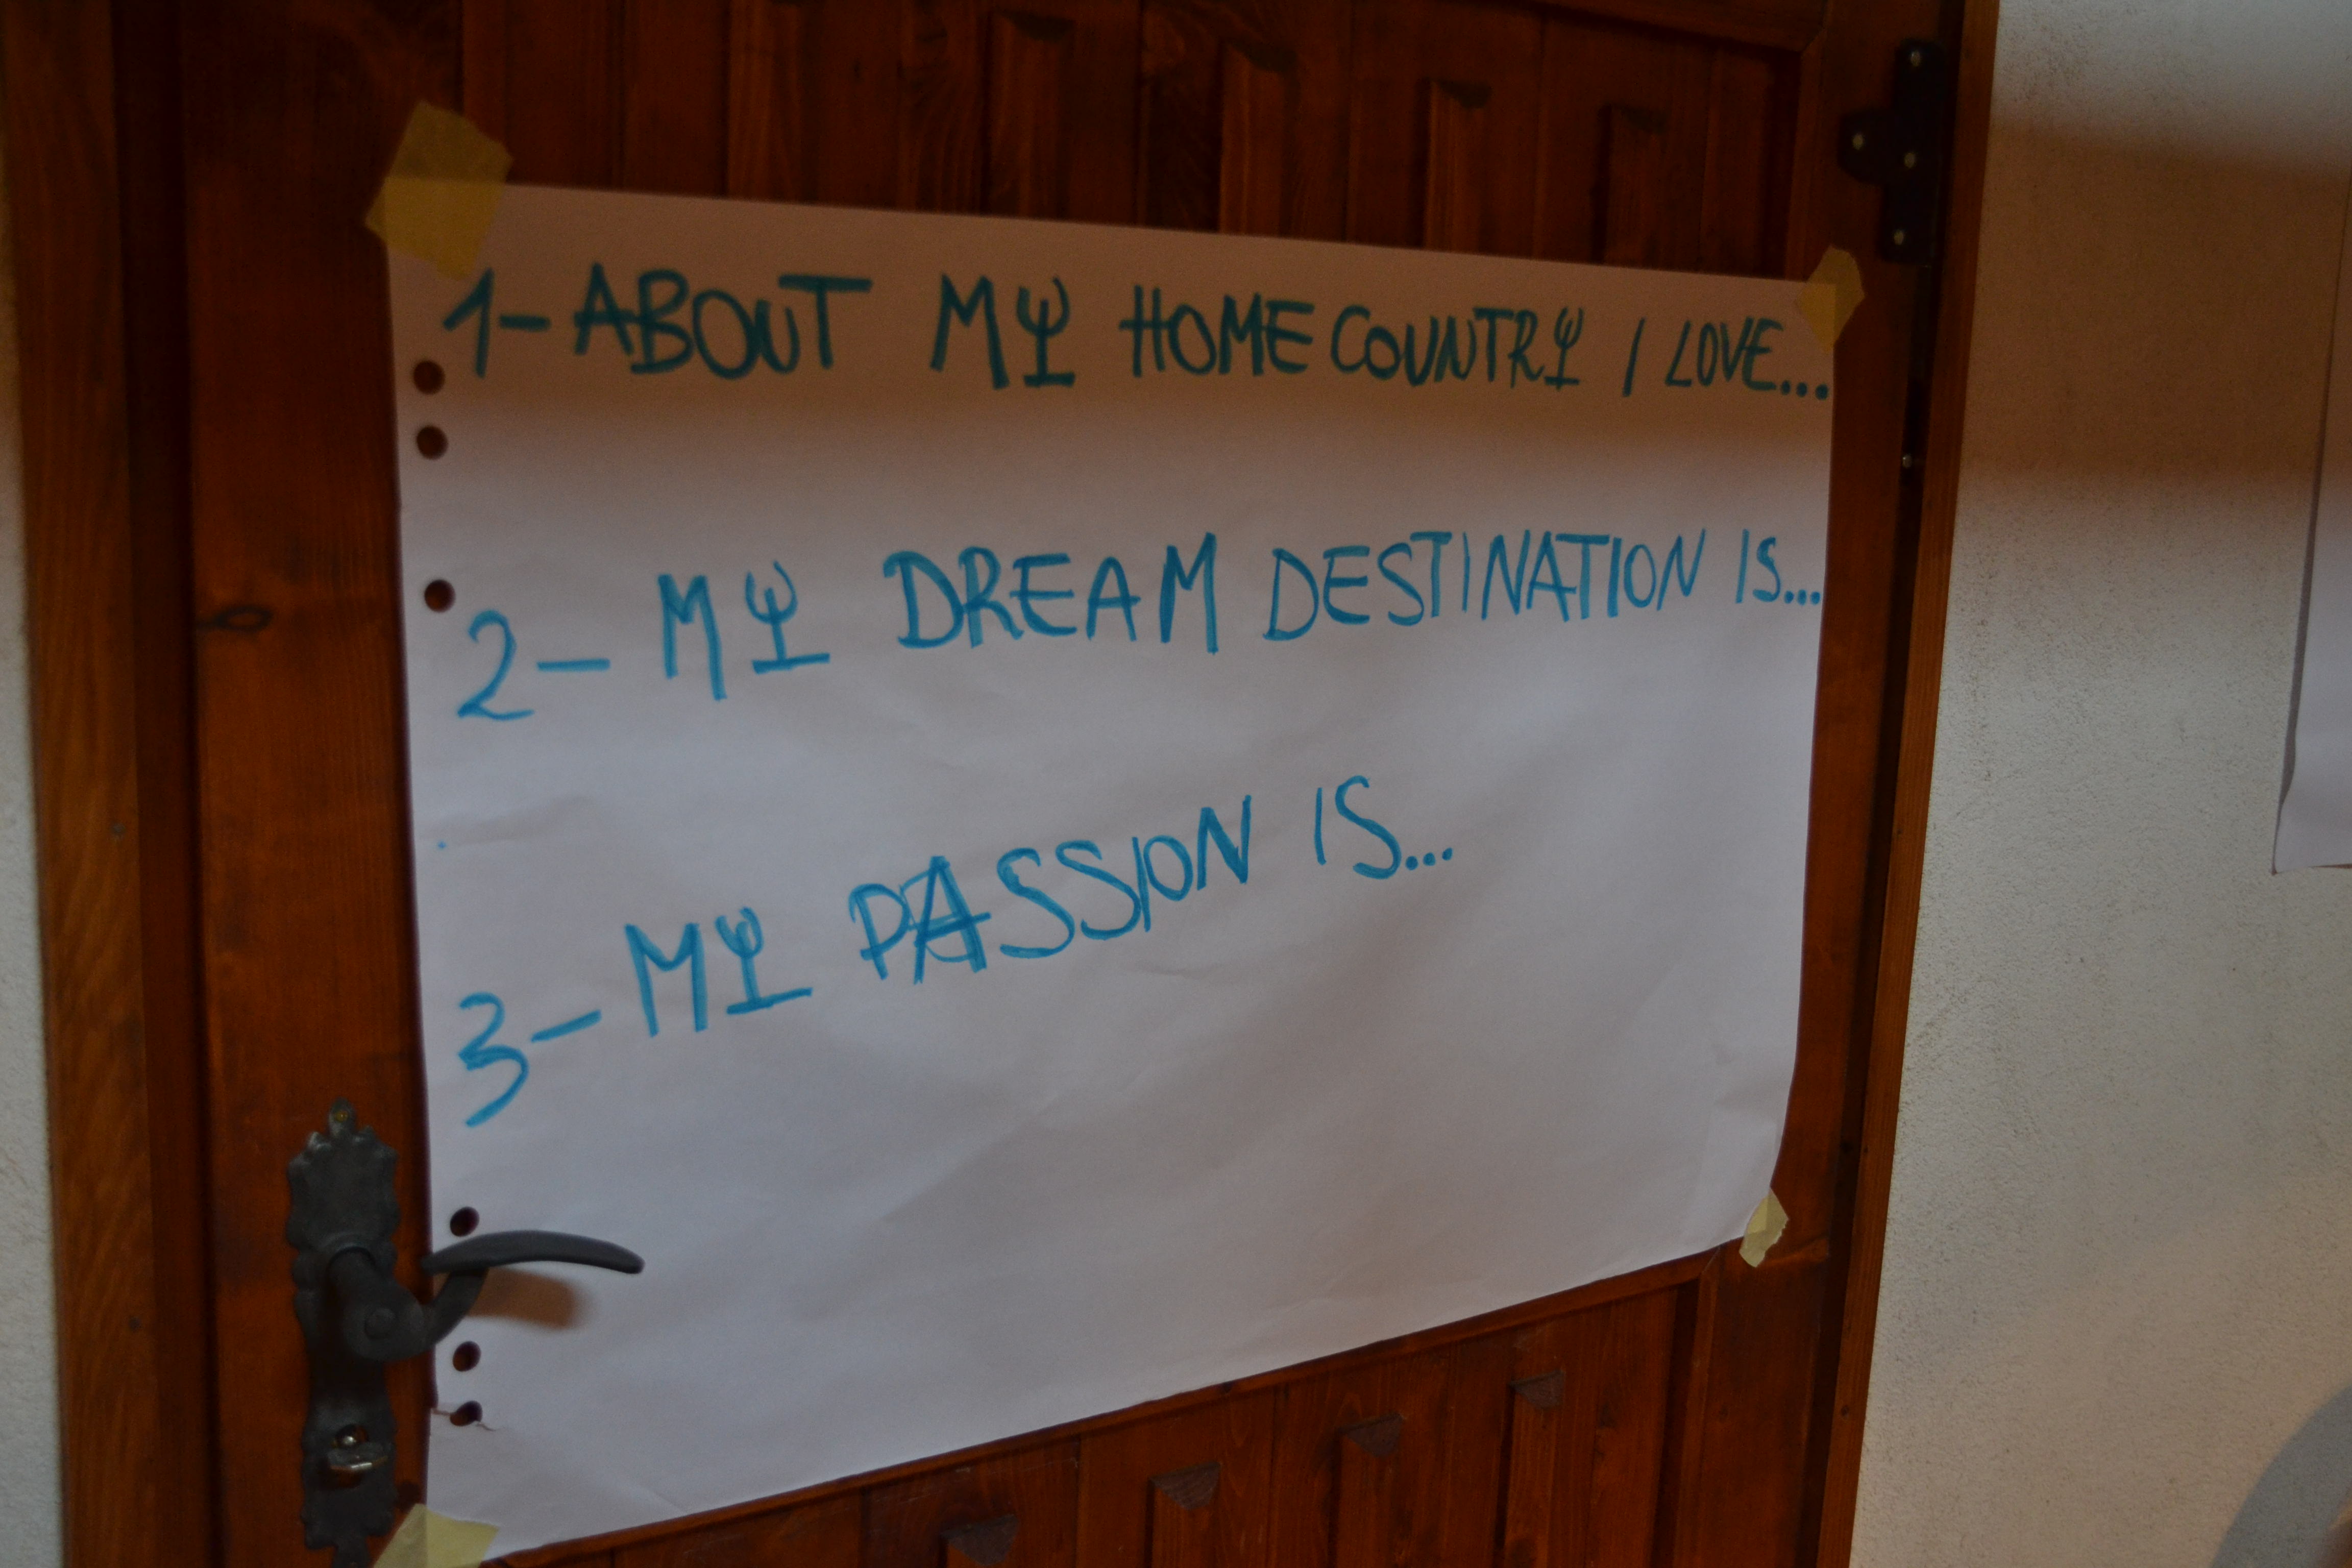 1-ABOUT MY HOME COUNTRY I LOVE...
2- MY DREAM DESTINATION IS...
3- MY PASSION IS...